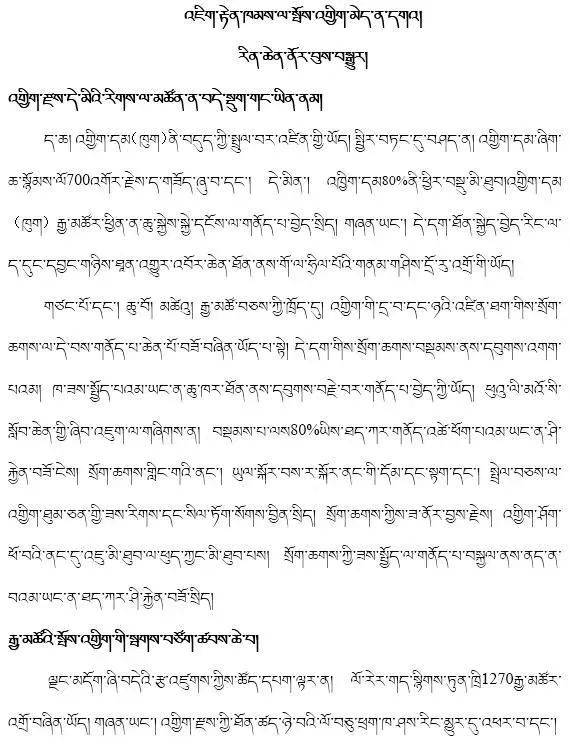 འཇིག་རྟེན་ཁམས་ལ་སྤོས་འགྱིག་མེད་ན་དགའ།
རིན་ཆེན་ནོར་བུས་བསྒྱུར།
འགྱིག་རྫས་དེ་མིའི་རིགས་ལ་མཚོན་ན་བདེ་སྡུག་གང་ཡིན་ནམ།
ད་ཆ། འགྱིག་དམ(ཁུག)ནི་བདུད་ཀྱི་སྤྲུལ་བར་འཛིན་གྱི་ཡོད། སྤྱིར་བཏང་དུ་བཤད་ན། འགྱིག་དམ་ཞིག་
ཆ་སྙོམས་ལོ700འགོར་རྗེས་ད་གཟོད་ཞུ་བ་དང་། དེ་མིན། འགྱིག་དམ80%ནི་ཕྱིར་བསྡུ་མི་ཐུབ།འགྱིག་དམ
(ཁུག) རྒྱ་མཚོར་ཕྱིན་ན་ཆུ་སྐྱེས་སྐྱེ་དངོས་ལ་གནོད་པ་བྱེད་སྲིད། གཞན་ཡང་། དེ་དག་ཐོན་སྐྱེད་བྱེད་རིང་ལ་
ད་དུང་དབྱང་གཉིས་ཐན་འགྱུར་འབོར་ཆེན་ཐོན་ནས་གོ་ལ་ཧྲིལ་པོའི་གནམ་གཤིས་དྲོ་རུ་འགྲོ་གི་ཡོད།
གཙང་པོ་དང་། ཆུ་བོ། མཚེའུ། རྒྱ་མཚོ་བཅས་ཀྱི་ཁྲོད་དུ། འགྱིག་གི་དྲ་བ་དང་ཉའི་འཛིན་ཐག་གིས་སྲོག་
ཆགས་ལ་དེ་བས་གནོད་པ་ཆེན་པོ་བཟོ་བཞིན་ཡོད་པ་སྟེ། དེ་དག་གིས་སྲོག་ཆགས་བསྡམས་ནས་དབུགས་འགག་
པའམ། ཁ་ཟས་སྤྱོད་པའམ་ཡང་ན་ཆུ་ཁར་ཐོན་ནས་དབུགས་བརྗེ་བར་གནོད་པ་བྱེད་ཀྱི་ཡོད། ཕུའུ་ལི་མའོ་སི་
སློབ་ཆེན་གྱི་ཞིབ་འཇུག་ལ་གཞིགས་ན། བསྡམས་པ་ལས80%ཡིས་ཐད་ཀར་གནོད་འཚེ་ཕོག་པའམ་ཡང་ན་ཤི་
རྐྱེན་བཟོ་ངེས། སྲོག་ཆགས་གླིང་གའི་ནང་། ཡུལ་སྐོར་བས་ར་སྐོར་ནང་གི་དོམ་དང་སྟག་དང་། སྤྲེལ་བཅས་ལ་
འགྱིག་ཐུམ་ཅན་གྱི་ཟས་རིགས་དང་སིལ་ཏོག་སོགས་བྱིན་སྲིད། སྲོག་ཆགས་ཀྱིས་ཟ་ནོར་བྱས་རྗེས། འགྱིག་ཤོག་
ཕོ་བའི་ནང་དུ་འཇུ་མི་ཐུབ་ལ་ཕུད་ཀྱང་མི་ཐུབ་པས། སྲོག་ཆགས་ཀྱི་ཟས་སྤྱོད་ལ་གནོད་པ་བསྐྱལ་ནས་ནད་ན་
བའམ་ཡང་ན་ཐད་ཀར་ཤི་རྐྱེན་བཟོ་སྲིད།
རྒྱ་མཚོའི་སྤོས་འགྱིག་གི་སྦགས་བཙོག་ཚབས་ཆེ་བ།
ལྗང་མདོག་ཞི་བདེའི་རྩ་འཛུགས་ཀྱིས་ཚོད་དཔག་ལྟར་ན། ལོ་རེར་གད་སྙིགས་ཏུན་ཁྲི1270རྒྱ་མཚོར་
འགྲོ་བཞིན་ཡོད། གཞན་ཡང་། འགྱིག་རྫས་ཀྱི་ཐོན་ཚད་ཉེ་བའི་ལོ་བཅུ་ཕྲག་ཁ་ཤས་རིང་མྱུར་དུ་འཕར་བ་དང་།